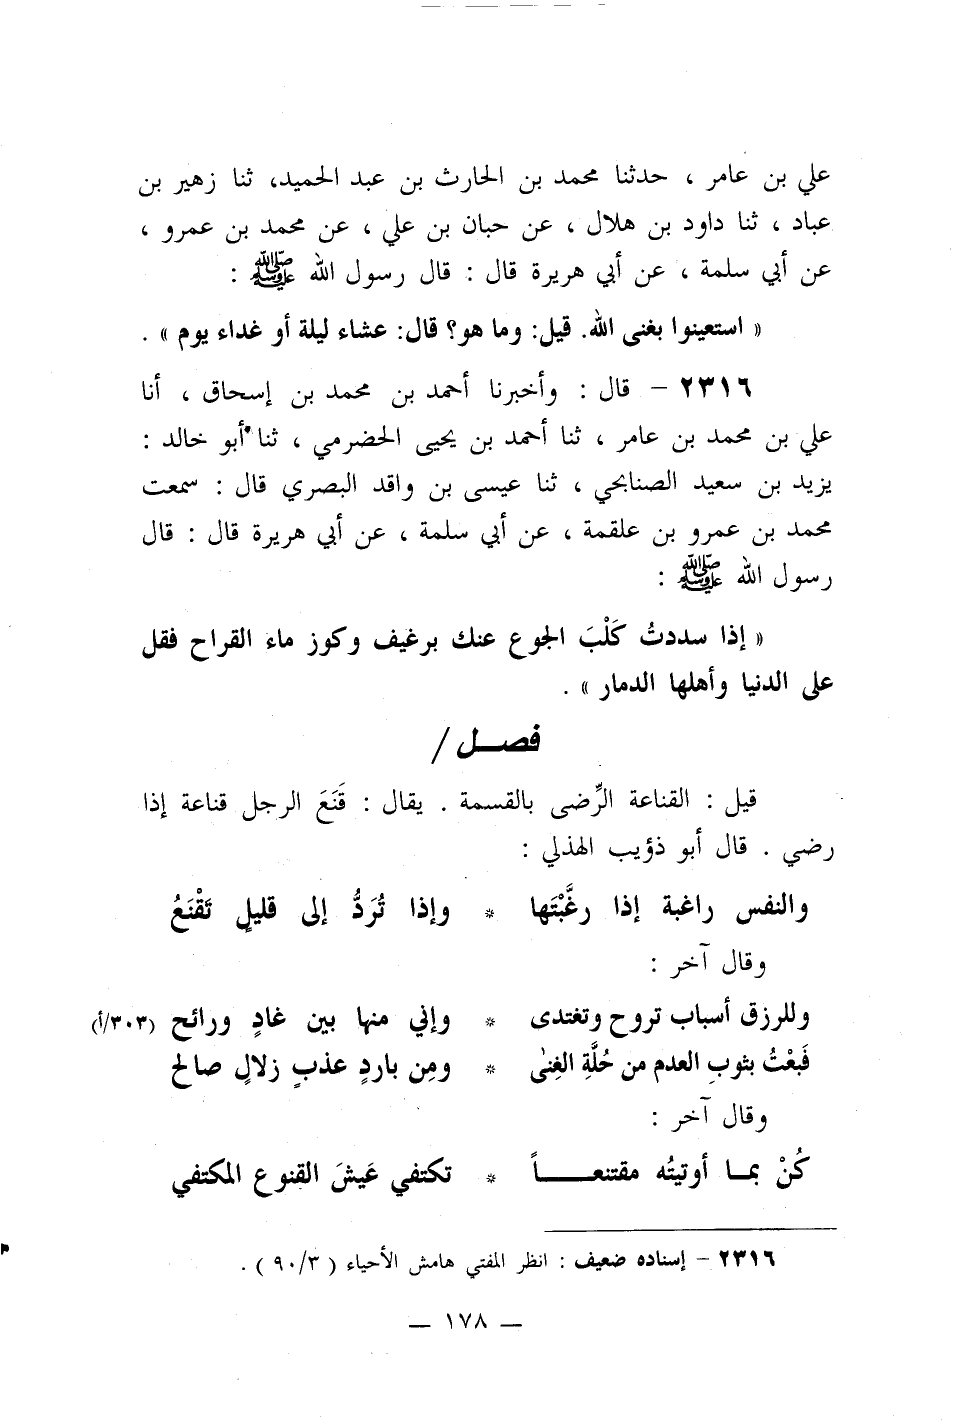 علي بن عامر ، حدثنا محمد بن الحارث بن عبد الحميد، ثنا زهير بن
عباد ، ثنا داود بن هلال ، عن حبان بن علي ، عن محمد بن عمرو ،
عن أبي سلمة ، عن أبي هريرة قال : قال رسول الله ﷺ :
« استعينوا بغنى الله. قيل: وما هو؟ قال: عشاء ليلة أو غداء يوم » .
٢٣١٦ – قال : وأخبرنا أحمد بن محمد بن إسحاق ، أنا
علي بن محمد بن عامر ، ثنا أحمد بن يحيى الحضرمي ، ثنا أبو خالد :
يزيد بن سعيد الصنابحي ، ثنا عيسى بن واقد البصري قال : سمعت
محمد بن عمرو بن علقمة ، عن أبي سلمة ، عن أبي هريرة قال : قال
رسول الله ﷺ :
« إذا سددتُ كَلْبَ الجوع عنك برغيف وكوز ماء القراح فقل
على الدنيا وأهلها الدمار » .
فصـــل /
قيل : القناعة الرِّضى بالقسمة . يقال : قَنَعَ الرجل قناعة إذا
رضي . قال أبو ذؤيب الهذلي :
والنفس راغبة إذا رغَّبْتَها * وإذا تُرَدُّ إلى قليلٍ تَقْنَعُ
وقال آخر :
وللرزق أسباب تروح وتغتدى * وإني منها بين غادٍ ورائح (٣٠٣/أ)
فَبعْتُ بثوبِ العدم من حُلَّةِ الغِنىٰ * ومِن باردٍ عذبٍ زلالٍ صالح
وقال آخر :
كُنْ بمـا أوتيتُه مقتنعـــــاً * تكتفي عَيشَ القنوع المكتفي
٢٣١٦ – إسناده ضعيف : انظر المفتي هامش الأحياء ( ٩٠/٣ ) .
— ١٧٨ —